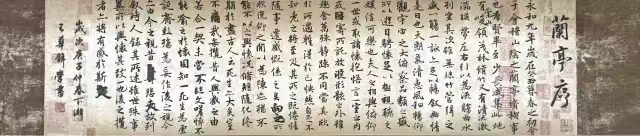 蘭亭序
永和九年歲在癸丑暮春之初會
于會稽山陰之蘭亭脩稧事
也群賢畢至少長咸集此地
有崇山峻領茂林脩竹又有清流激
湍暎帶左右引以為流觴曲水
列坐其次雖無絲竹管弦之
盛一觴一詠亦足以暢敘幽情
是日也天朗氣清惠風和暢仰
觀宇宙之大俯察品類之盛
所以遊目騁懷足以極視聽之
娛信可樂也夫人之相與俯仰
一世或取諸懷抱悟言一室之內
或因寄所託放浪形骸之外雖
趣舍萬殊靜躁不同當其欣
於所遇暫得於己快然自足不
知老之將至及其所之既惓情
隨事遷感慨係之矣向之所
欣俛仰之間以為陳迹猶不
能不以之興懷況脩短隨化終
期於盡古人云死生亦大矣豈
不痛哉每攬昔人興感之由
若合一契未嘗不臨文嗟悼不
能喻之於懷固知一死生為虛
誕齊彭殤為妄作後之視今
亦由今之視昔悲夫故列
敘時人錄其所述雖世殊事
異所以興懷其致一也後之攬
者亦將有感於斯文
歲次庚子仲春下澣